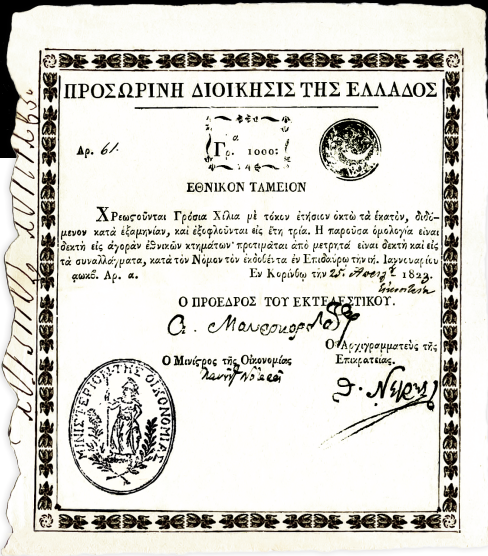 ΠΡΟΣΩΡΙΝΗ ΔΙΟΙΚΗΣΙΣ ΤΗΣ ΕΛΛΑΔΟΣ
Αρ. 61.
α
Γρ. 1000:
ΕΘΝΙΚΟΝ ΤΑΜΕΙΟΝ
Χρεωστοῦνται Γρόσια Χίλια μὲ τόκον ἐτήσιον ὀκτὼ τὰ ἑκατὸν, διδό-
μενον κατὰ ἑξαμηνίαν, καὶ ἐξοφλοῦνται εἰς ἔτη τρία. Ἡ παροῦσα ὁμολογία εἶναι
δεκτὴ εἰς ἀγορὰν ἐθνικῶν κτημάτων· προτιμᾶται ἀπὸ μετρητὰ εἶναι δεκτὴ καὶ εἰς
τὰ συναλλάγματα, κατὰ τὸν Νόμον τὸν ἐκδοθέντα ἐν Ἐπιδαύρῳ τὴν ιη. Ἰαννουαρίου
αωκβ. Αρ. α. Ἐν Κορίνθῳ τὴν 25 1822
Ο ΠΡΟΕΔΡΟΣ ΤΟΥ ΕΚΤΕΛΕΣΤΙΚΟΥ.
Α. Μαυροκορδάτος
Ὁ Μινίστρος τῆς Οἰκονομίας
Ὁ Ἀρχιγραμματεὺς τῆς
Ἐπικρατείας.
Θ. Νέγρης
ΜΙΝΙΣΤΕΡΙΟΝ ΤΗΣ ΟΙΚΟΝΟΜΙΑΣ